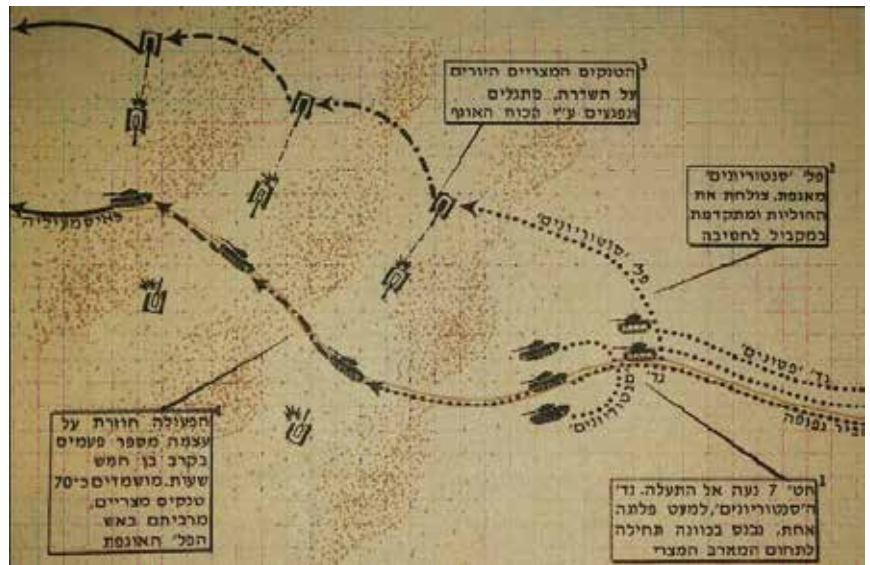 3
הטנקים המצריים היורים
על השדרה, מתגלים
ונפגעים ע"י הכוח האוגף
2
פל' 'סנטוריונים'
מאגפת, צולחת את
החוליות ומתקדמת
במקביל לחטיבה
פל' 'סנטוריונים'
לאיסמעיליה
גד' 'פטונים'
גד' 'סנטוריונים'
כפופה
4
הפעולה חוזרת על
עצמה מספר פעמים
בקרב בן חמש
שעות. מושמדים כ־70
טנקים מצריים,
מרביתם באש
הפל' האוגפת
1
חט' 7 נעה אל התעלה. גד'
ה'סנטוריונים', למעט פלוגה
אחת, נכנס בכוונה תחילה
לתחום המארב המצרי